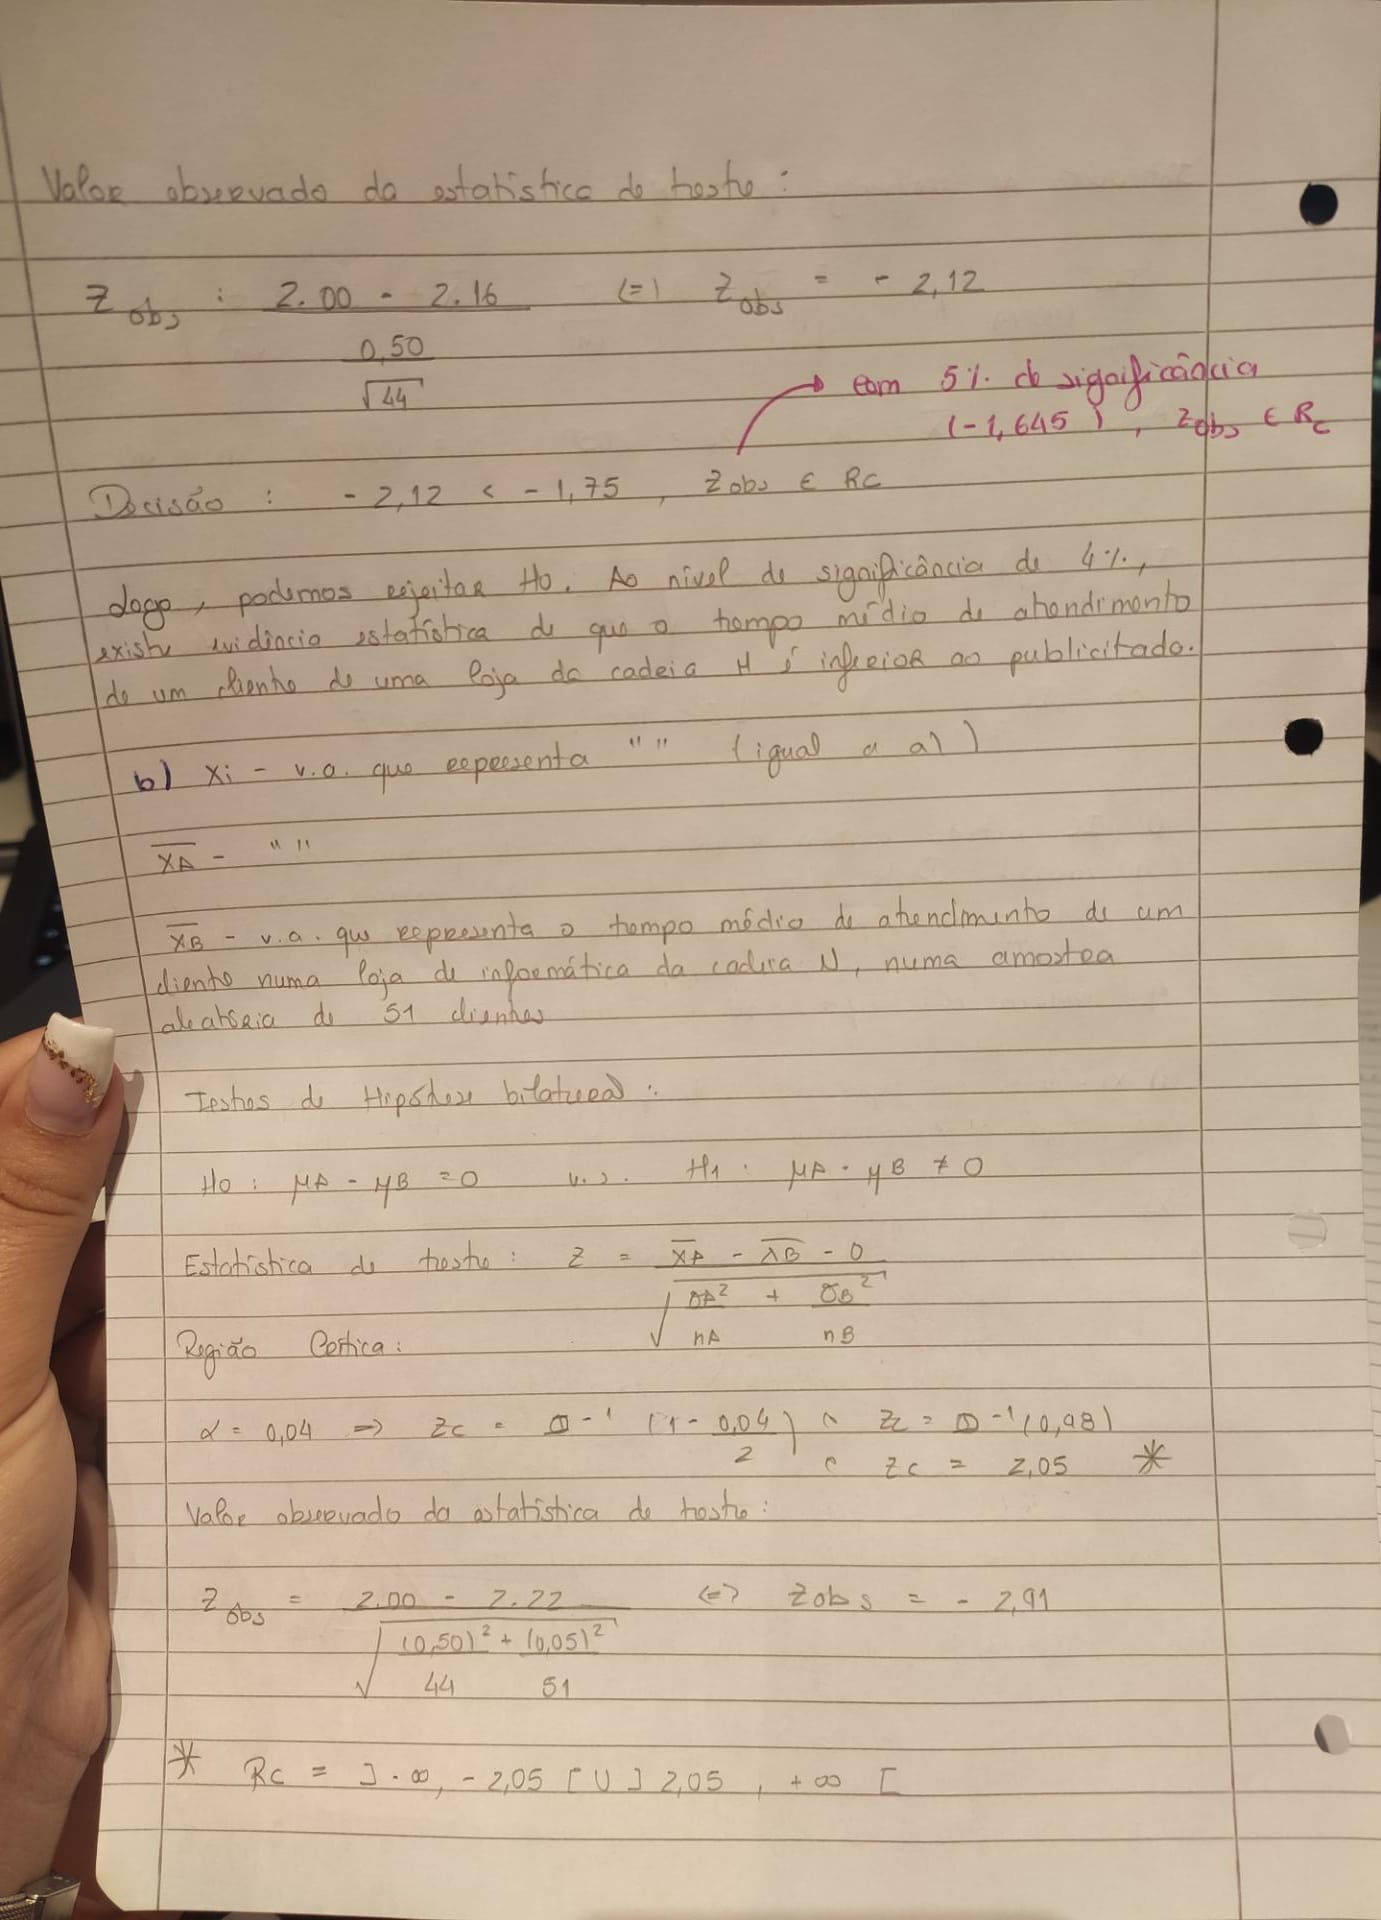 Valor observado da estatística de teste :
Z obs : 2.00 - 2.16 (=) Z obs = - 2,12
0,50
√44
com 5% de significância
(-1,645) , Z obs ∈ Rc
Decisão : - 2,12 < - 1,75 , Z obs ∈ RC
Logo, podemos rejeitar H0. Ao nível de significância de 4%,
existe evidência estatística de que o tempo médio de atendimento
de um cliente de uma loja da cadeia H é inferior ao publicitado.
b) Xi - v.a. que representa " " (igual a a))
X̅A - " "
X̅B - v.a. que representa o tempo médio de atendimento de um
cliente numa loja de informática da cadeia N, numa amostra
aleatória de 51 clientes
Testes de Hipótese bilateral :
H0 : μA - μB = 0 v.s. H1 : μA - μB ≠ 0
Estatística de teste : Z = X̅A - X̅B - 0
√ σA² + σB²
nA nB
Região Crítica :
α = 0,04 => Zc = Φ-¹ (1 - 0,04) Zc = Φ-¹ (0,98)
2 Zc = 2,05 *
Valor observado da estatística de teste :
Z obs = 2.00 - 2.22 (=) Z obs = - 2,91
√ (0,50)² + (0,05)²
44 51
* RC = ]-∞, -2,05 [ U ] 2,05 , +∞ [